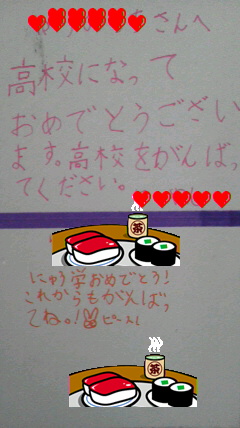 さんへ
高校になって
おめでとうござい
ます。高校をがんばっ
てください。
茶
にゅう学おめでとう!
これからもがんばっ
てね。! ピース
茶